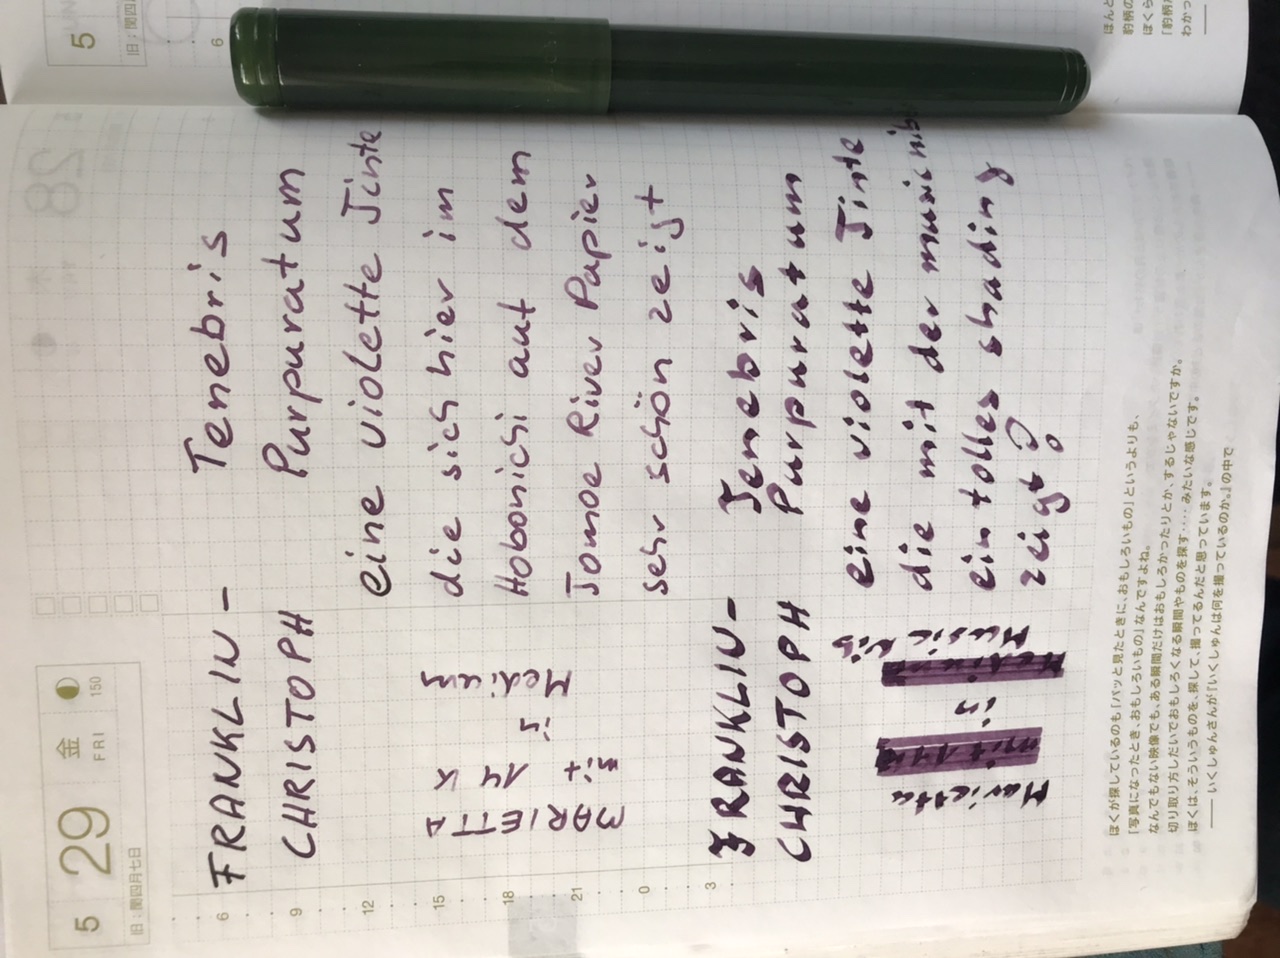 5
29
金
FRI
150
旧：閏四月七日
FRANKLIN - Tenebris
CHRISTOPH Purpuratum
eine violette Tinte
die sich hier im
Hobonichi auf dem
Tomoe River Papier
sehr schön zeigt
MARIETTA
mit
14 K
1.5
Medium
FRANKLIN - Tenebris
CHRISTOPH Purpuratum
eine violette Tinte
die mit der music nib
ein tolles shading
zeigt?
Marietta
mit 14K
1.5
Music Nib
6
9
12
15
18
21
0
3
ぼくが探しているのも「パッと見たときに、おもしろいもの」というよりも、
「写真になったとき、おもしろいもの」なんですよね。
なんでもない映像でも、ある瞬間だけはおもしろかったりとか、するじゃないですか。
切り取り方しだいでおもしろくなる瞬間やものを探す‥‥みたいな感じです。
ぼくは、そういうものを、探して、撮ってるんだと思っています。
── いくしゅんさんが『いくしゅんは何を撮っているのか。』の中で
5
6